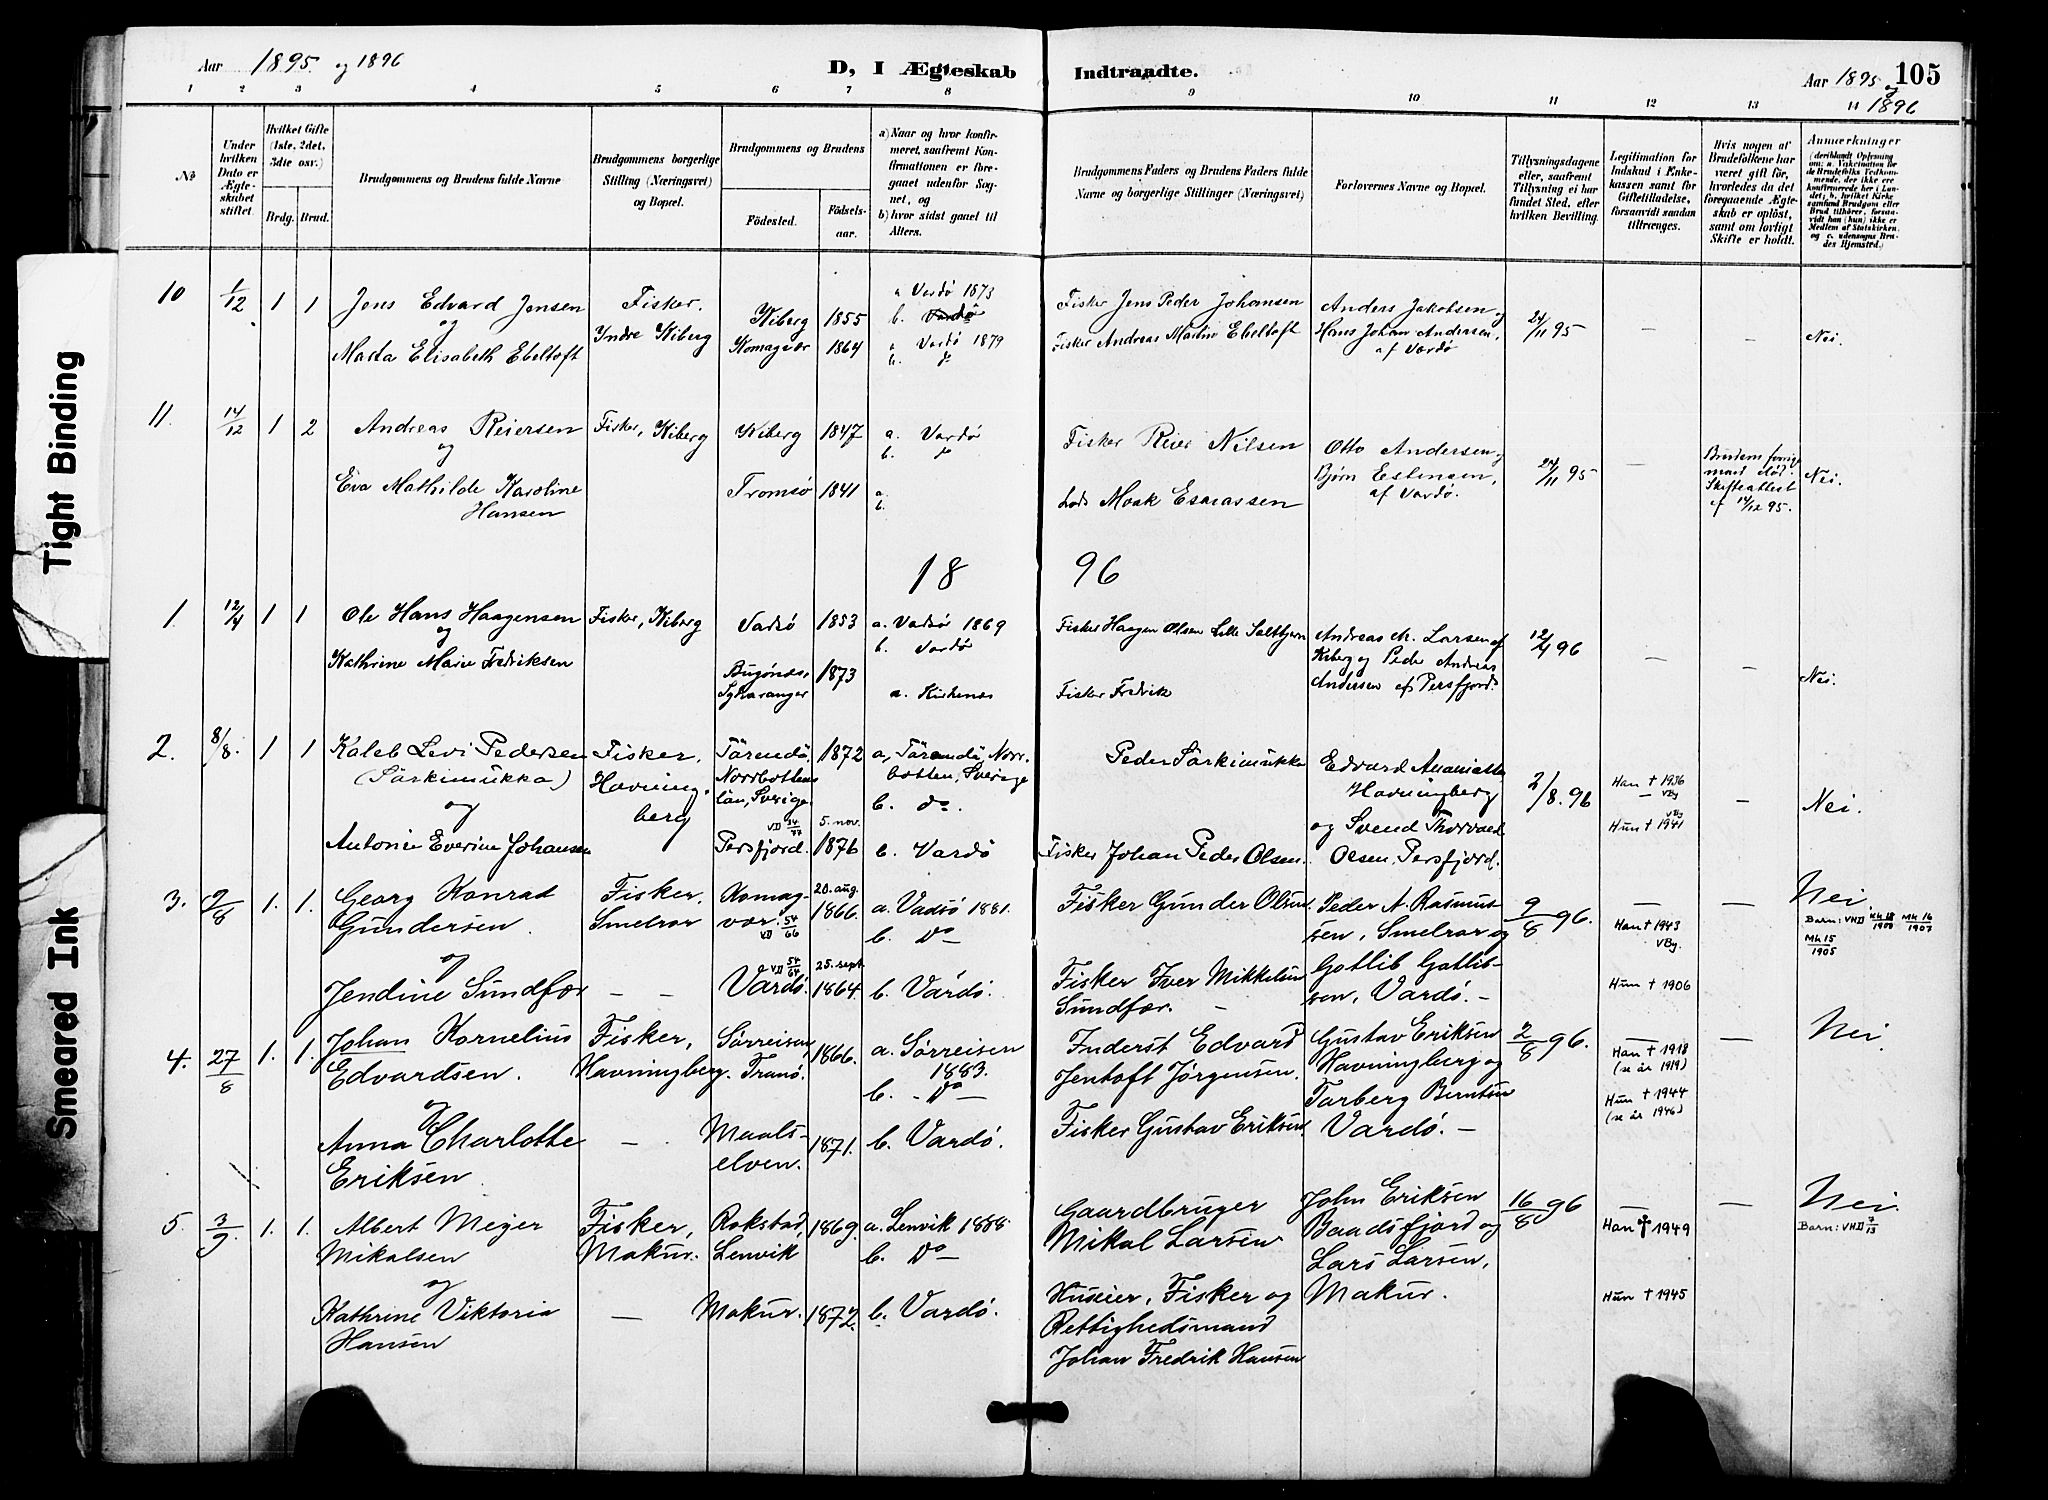 Aar 1895 og 1896
D, I Ægteskab Indtraadte.
Aar 1895 og 1896
105
1 2 3 4 5 6 7 8 9 10 11 12 13 14
No
Under hvilken Dato er Ægteskabet stiftet.
Hvilket Gifte (1ste, 2det, 3die osv.)
Brdg. Brud.
Brudgommens og Brudens fulde Navne
Brudgommens borgerlige Stilling (Næringsvei) og Bopæl.
Brudgommens og Brudens
Fødested.
Fødselsaar.
a) Naar og hvor konfirmeret, saafremt Konfirmationen er foregaaet udenfor Sognet, og
b) hvor sidst gaaet til Alters.
Brudgommens Faders og Brudens Faders fulde Navne og borgerlige Stillinger (Næringsvei)
Forlovernes Navne og Bopæl.
Tillysningsdagene eller, saafremt Tillysning ei har fundet Sted, efter hvilken Bevilling.
Legitimation for Indskud i Enkekassen samt for Giftetilladelse, forsaavidt saadan tiltrænges.
Hvis nogen af Brudefolkene har været gift før, hvorledes da det foregaaende Ægteskab er opløst, samt om lovligt Skifte er holdt.
Anmærkninger
(deriblandt Oplysning om: a. Vakcination for de Brudefolks Vedkommende, der ikke ere konfirmerede her i Landet; b. hvilket Kirkesamfund Brudgom eller Brud tilhører, forsaavidt han (hun) ikke er Medlem af Statskirken, og c. udensogns Brudes Hjemsted.)
10 1/12 1 1 Jens Edvard Jensen
og
Marta Elisabeth Ebeltoft
Fisker.
Indre Kiberg
Kiberg 1855
Komagvær 1864
a Vardø 1873
b. Vardø
a Vardø 1879
b. do
Fisker Jens Peder Johansen
Fisker Andreas Martin Ebeltoft
Anders Jakobsen og
Hans Johan Andersen,
af Vardø
24/11 95
—
—
Nei.
11. 14/12 1 2 Andreas Reiersen
og
Eva Mathilde Karoline
Hansen
Fisker, Kiberg
Kiberg 1847
Tromsø 1841
a. Vardø
b. do
a.
b.
Fisker Reier Nilsen
Otto Andersen og
Bjørn Estensen,
af Vardø.
24/11 95
—
Brudens forrige
mand død.
Skifteattest
af 14/12 95.
Nei.
18 96
1. 12/4 1 1 Ole Hans Haagensen
og
Kathrine Marie Fredriksen
Fisker, Kiberg
Vadsø 1853
Bugønes, 1873
Sydvaranger
a. Vadsø 1869
b. Vardø
a. Kirkenes
Fisker Haagen Olsen Lille Saltbjern
Fisker Fredrik
Andreas M. Larsen af
Kiberg og Peder Andreas
Andersen af Persfjord.
12/4 96
—
—
Nei.
2. 8/8. 1 1 Kaleb Levi Pedersen
(Särkimukka)
og
Antonie Everine Johansen
Fisker.
Havningberg
Tärendö, 1872
Norrbottens
län, Sverige.
VII 34/77 5. nov.
Persfjord. 1876
a, Tärendö, Norrbotten, Sverige
b. do.
b. Vardø
Peder Särkimukka
Fisker Johan Peder Olsen.
Edvard
Havningberg
og Svend Thorvald
Olsen, Persfjord.
2/8. 96
Han † 1936
VBy
VBy
Hun † 1941
—
Nei.
3. 9/8 1. 1. Georg Konrad
Gundersen.
og
Jendine Sundfær
Fisker.
Smelror
— —
Komagvær. 20. aug. 1866.
VII 54/66
VII 54/64 25. sept
Vardø. 1864.
a. Vadsø 1881.
b. Do —
b. Vardø.
Fisker Gunder Olsen
Fisker Iver Mikkelsen
Sundfær. —
Peder N. Rasmussen, Smelror og
Gotlib Gotlibsen, Vardø. —
9/8 96.
—
Han † 1943
VBy.
Hun † 1906
—
Nei.
Barn: VHII Kk 18/1900 Mk 16/1907
Mk 15/1905
4. 27/8 1. 1. Johan Kornelius
Edvardsen.
og
Anna Charlotte
Eriksen.
Fisker,
Havningberg.
—
Sørreisen, 1866.
Tranø.
Maalselven. 1871.
a. Sørreisen
1883.
b. - Do —
b. Vardø.
Inderst Edvard
Jentoft Jørgensen.
Fisker Gustav Eriksen.
Gustav Eriksen
Havningberg og
Tarberg Berntsen
Vardø. —
2/8 96.
—
Han † 1918
(se år 1919)
Hun † 1944
(se år 1946)
—
Nei.
5. 3/9. 1. 1. Albert Meyer
Mikalsen
og
Kathrine Viktoria
Hansen
Fisker,
Makur.
—
Rokstad, 1869.
Lenvik
Makur. 1872.
a. Lenvik 1888.
b. Do —
b. Vardø.
Gaardbruger
Mikal Larsen
Huseier, Fisker og
Rettighedsmand
Johan Fredrik Hansen
John Eriksen
Baadsfjord og
Lars Larsen,
Makur.
16/8 96
—
Han † 1949
Hun † 1945
—
Nei.
Barn: VHII 7/13
Tight Binding
Smeared Ink